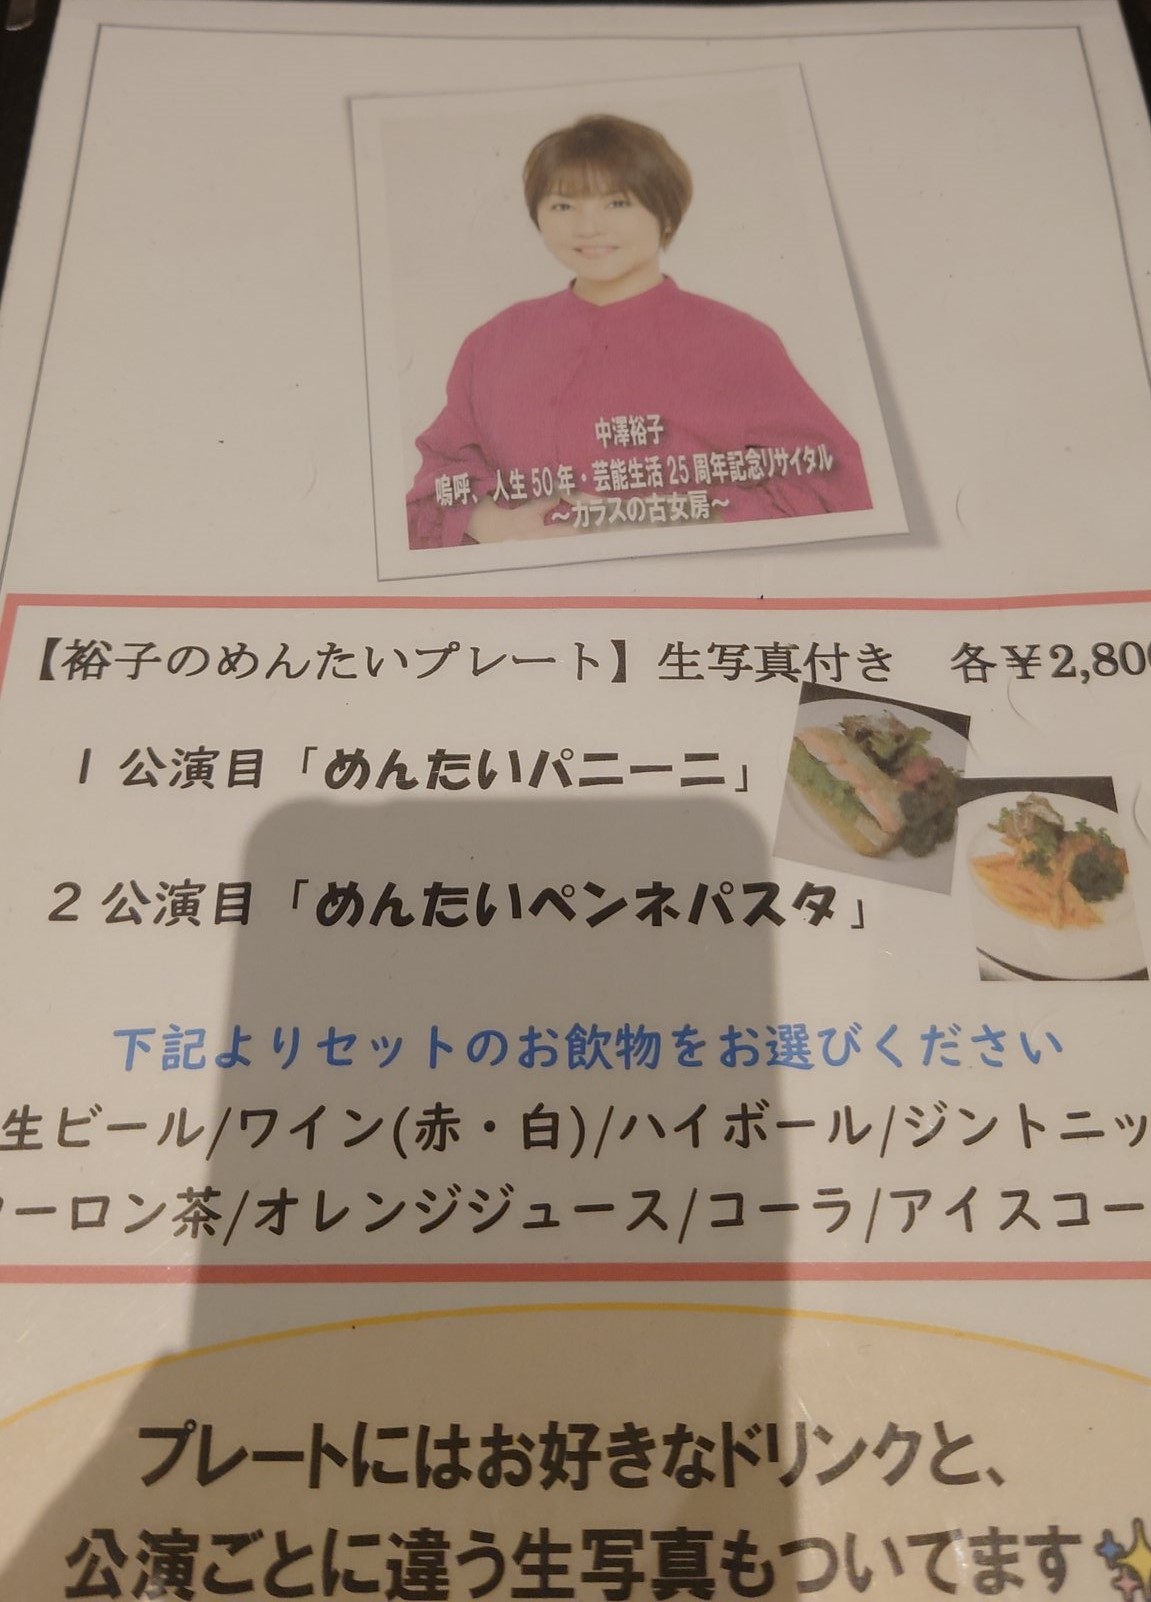 中澤裕子
嗚呼、人生50年・芸能生活25周年記念リサイタル
~カラスの古女房~
【裕子のめんたいプレート】生写真付き　各¥2,800
1 公演目「めんたいパニーニ」
2 公演目「めんたいペンネパスタ」
下記よりセットのお飲物をお選びください
生ビール/ワイン(赤・白)/ハイボール/ジントニッ
ーロン茶/オレンジジュース/コーラ/アイスコー
プレートにはお好きなドリンクと、
公演ごとに違う生写真もついてます✨